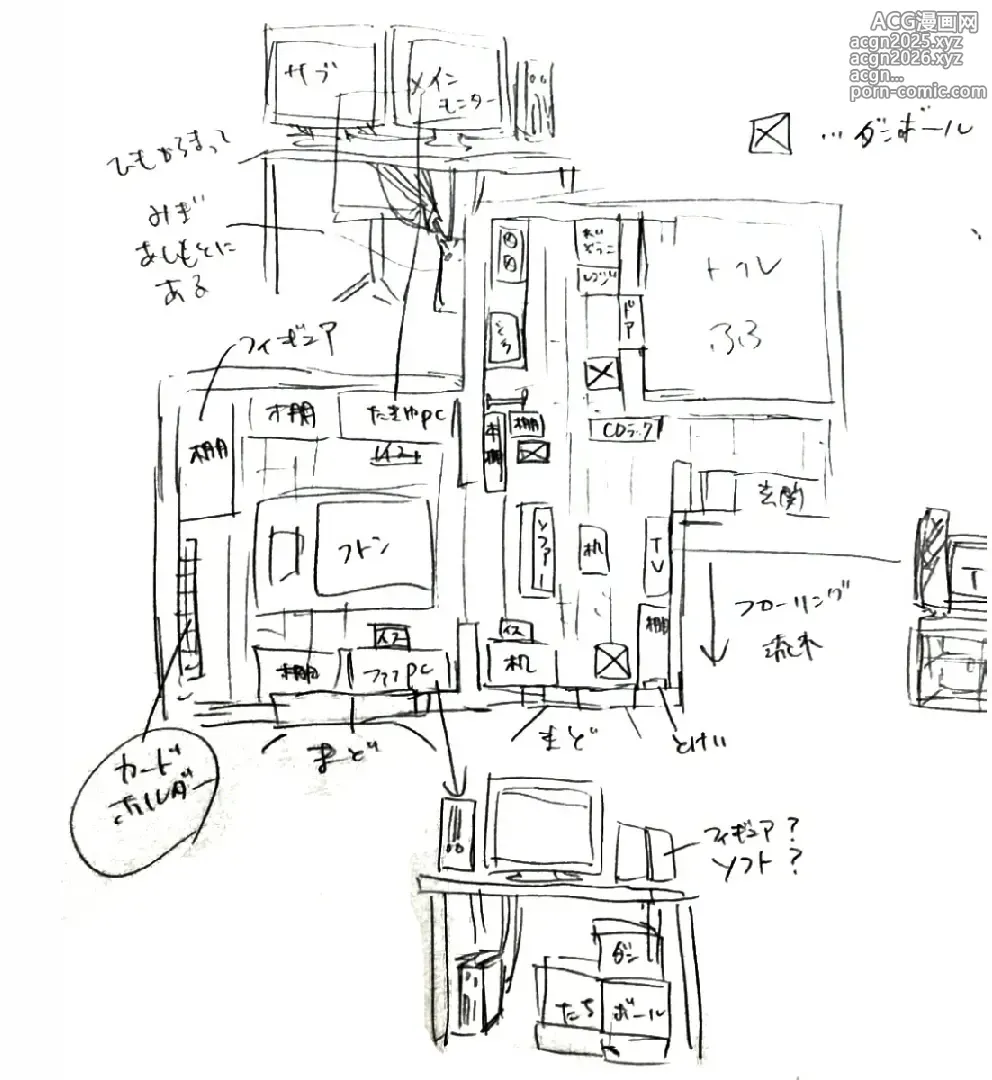 ACG漫画网
acgn2025.xyz
acgn2026.xyz
acgn...
porn-comic.com
サブ
メイン
モニター
…ダンボール
ひもからまって
みぎ
あしもとに
ある
フィギュア
トイレ
ふろ
ドア
レンジ
棚
本棚
たきやPC
イス
本棚
棚
CDラック
玄関
フトン
ソファー
机
TV
棚
フローリング
流れ
イス
イス
机
まど
まど
とけい
カード
ホルダー
T
フィギュア?
ソフト?
ダン
たち
ボール